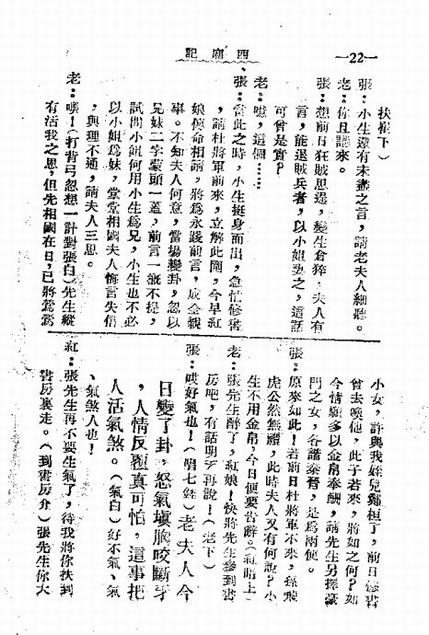 西廂記
—22—
下）
張：小生還有未盡之言，請老夫人細聽。
老：你且講來。
張：想前日狂賊思逞，變生倉猝，夫人有
言，能退賊兵者，以小姐妻之，這話
可曾是實？
老：嗯，這個……
張：當此之時，小生挺身而出，急忙修書
，請杜將軍前來，立解此圍，今早紅
娘傳命相請，將為永踐前言，成全親
事。不知夫人何意，當場變卦，忽以
兄妹二字蒙頭一蓋，前言一概不提，
試問小姐何用小生為兄，小生也不必
以小姐為妹，堂堂相國夫人悔言失信
，與理不通，請夫人三思。
老：！（打背弓忽想一計對張白）先生縱
有活我之恩，但先相國在日，已將鶯鶯
小女，許與我姪兒鄭桓了，前日修書
曾去喚他，此子若來，將如之何？如
今情願多以金帛奉酬，請先生另擇豪
門之女，各諧秦晉，是為兩便。
張：原來如此！若前日杜將軍不來，孫飛
虎公然無禮，此時夫人又有何說？小
生不用金帛，今日便要告辭。（紅暗上）
老：張先生醉了，紅娘！快將先生攙到書
房吧，有話明天再說！（老下）
張：哎好氣也！（唱七鋞）老夫人今
日變了卦，怒氣塡胸咬斷牙
，人情反覆真可怕，這事把
人活氣煞。（氣白）好不氣、氣
、氣煞人也！
紅：張先生再不要生氣了，待我將你扶到
書房裏走。（到書房介）張先生你大